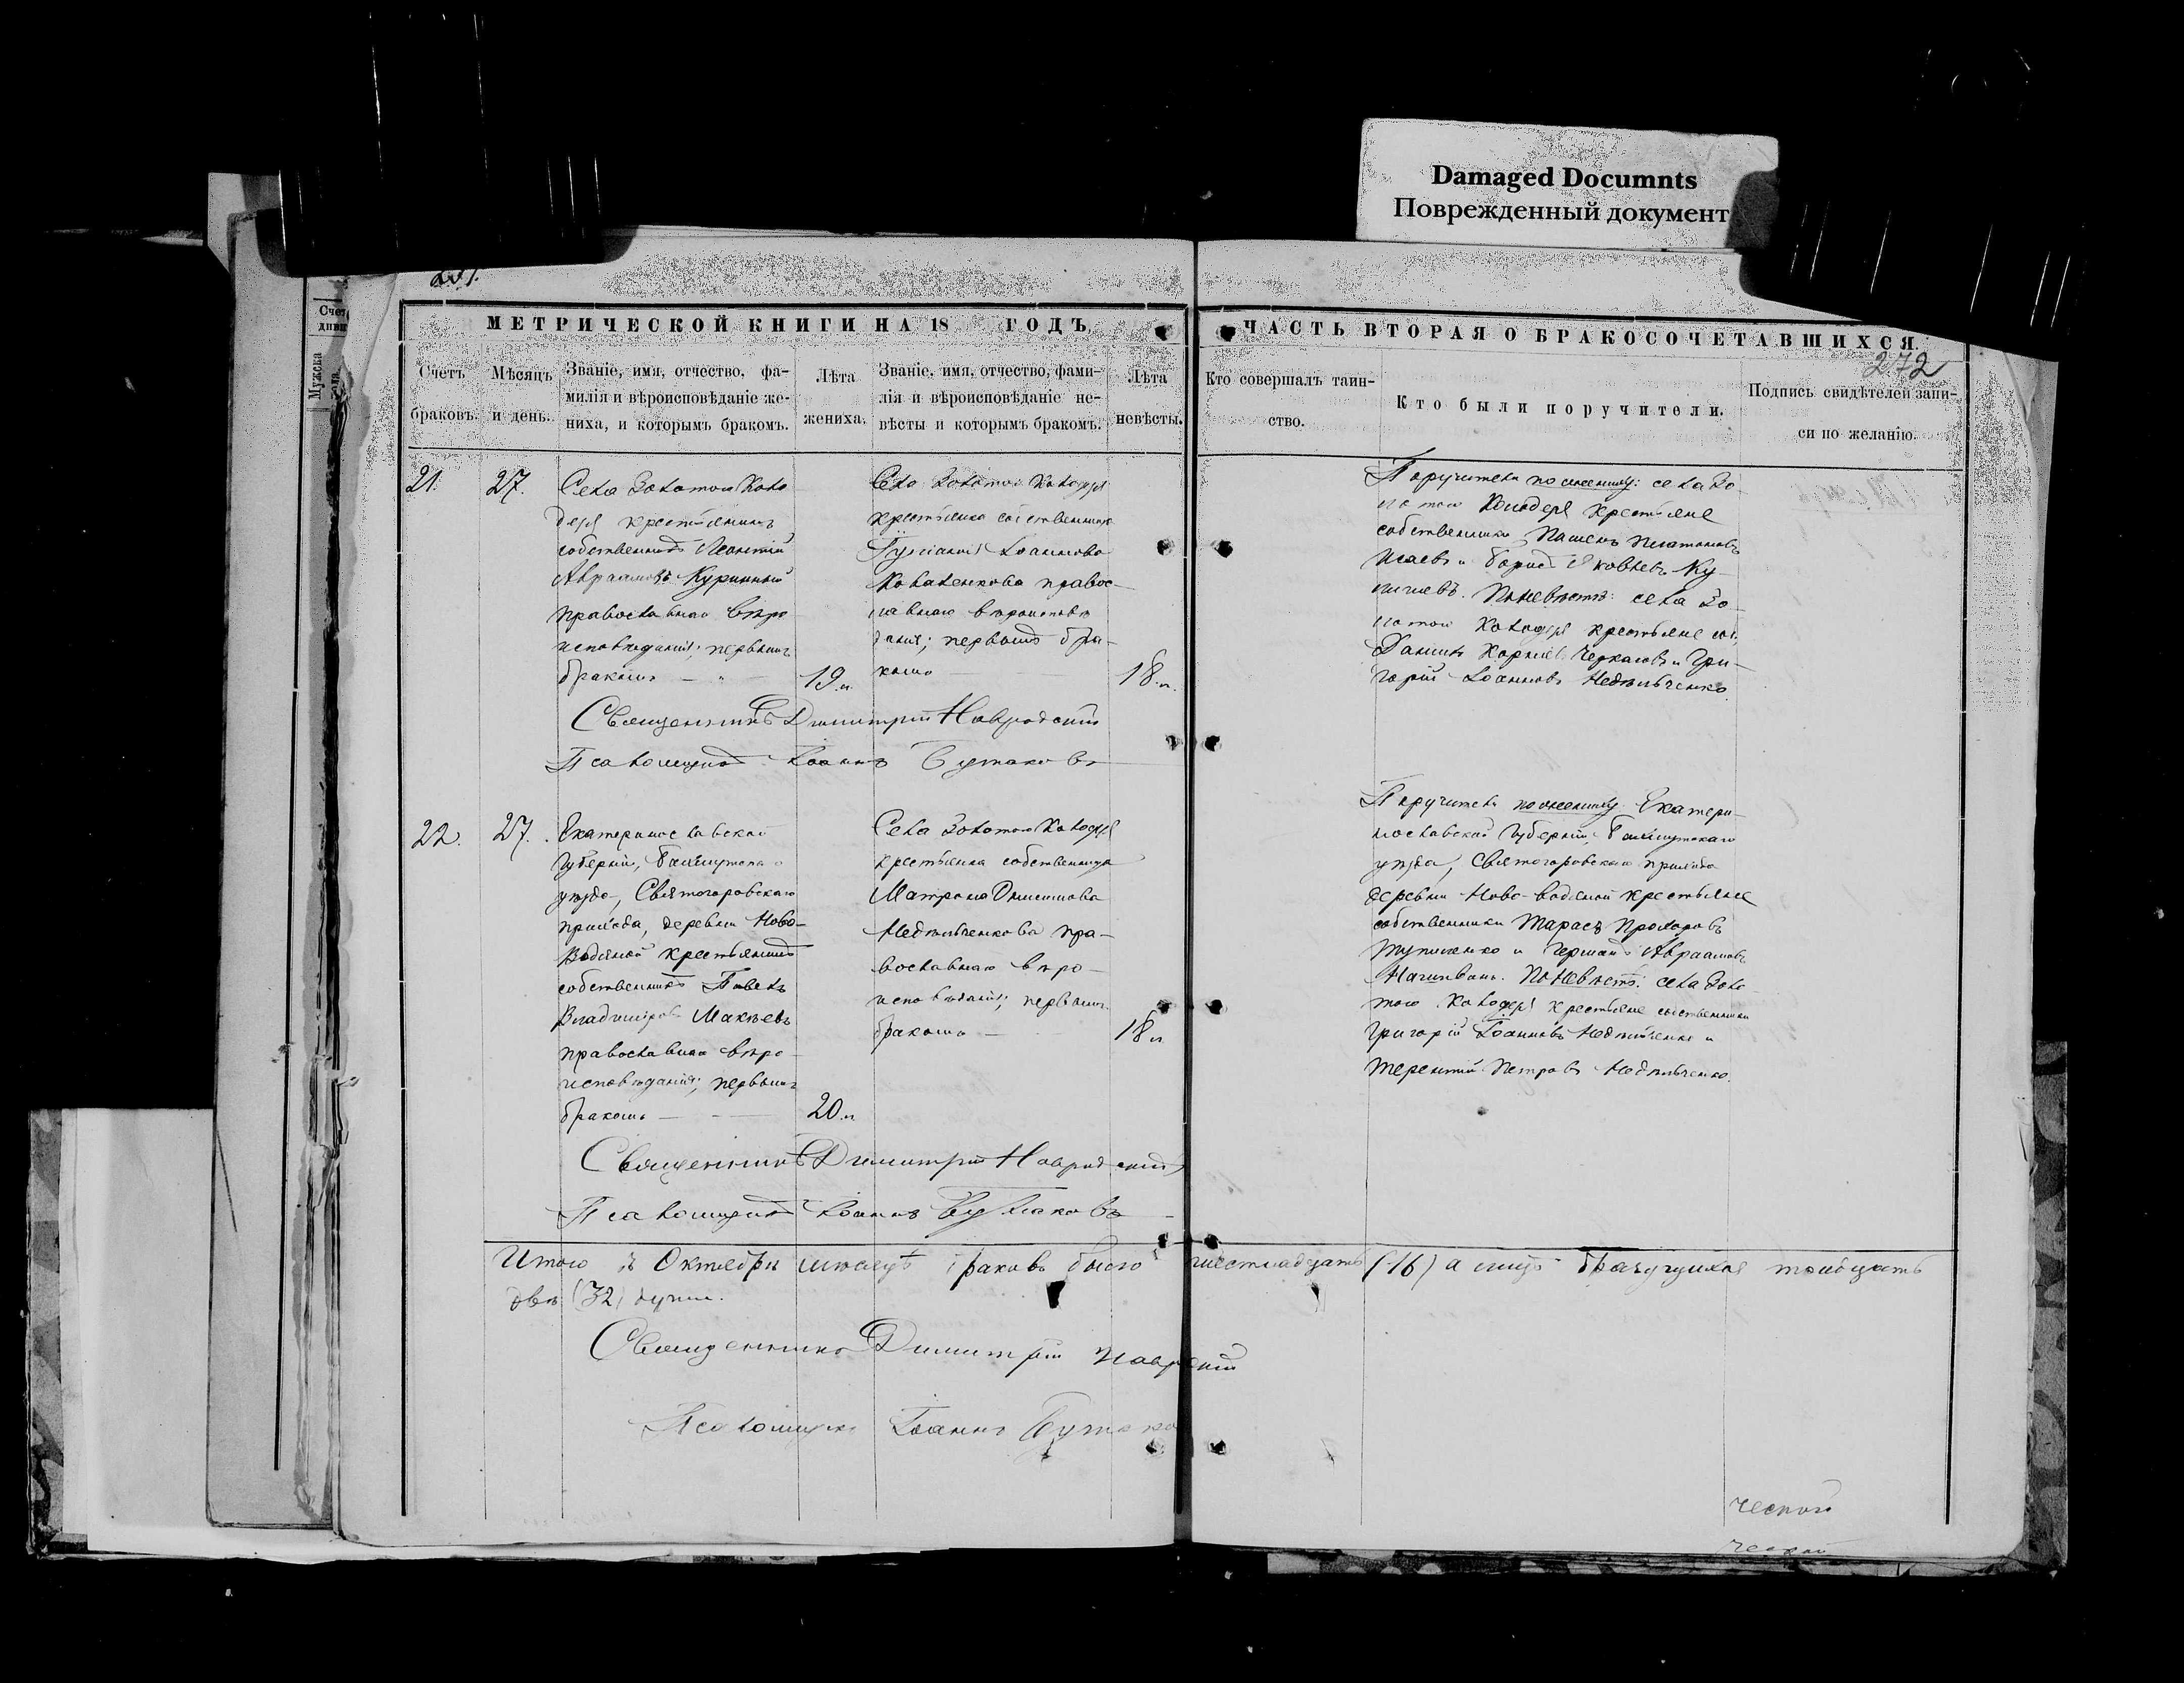 Damaged Documnts
Поврежденный документ
МЕТРИЧЕСКОЙ КНИГИ НА 18 ГОДЪ
ЧАСТЬ ВТОРАЯ О БРАКОСОЧЕТАВШИХСЯ.
272
Счетъ
браковъ.
Мѣсяцъ
и день.
Званіе, имя, отчество, фа-
милія и вѣроисповѣданіе же-
ниха, и которымъ бракомъ.
Лѣта
жениха.
Званіе, имя, отчество, фами-
лія и вѣроисповѣданіе не-
вѣсты и которымъ бракомъ.
Лѣта
невѣсты.
Кто совершалъ таин-
ство.
Кто были поручители.
Подпись свидѣтелей запи-
си по желанію.
21.
27.
Села Золотого Коло
дезя крестьянинъ
собственникъ Леонтій
Авраамовъ Куринный
православнаго вѣро
исповѣданія; первымъ
бракомъ
19 л.
Села Золотого Колодезя
крестьянка собственница
Іоаннова
Коваленкова правос-
лавнаго вѣроисповѣ
данія; первымъ бра-
комъ
18 л.
Поручители по женихѣ: села Зо
лотого Колодезя крестьяне
собственники Платоновъ
Исаевъ и Борисъ Яковлевъ Ку
. По невѣстѣ: села Зо
лотого Колодезя крестьяне соб.
Даніилъ Корніевъ Черкасовъ и Гри-
горій Іоанновъ Недѣльченко
Священникъ Димитрій Навродскій
Псаломщикъ Іоаннъ Бутаковъ
22.
27.
Екатеринославской
губерніи, Бахмутскаго
уѣзда, Святогоровскаго
прихода, деревни Ново-
Водяной крестьянинъ
собственникъ Павелъ
Владиміровъ Макѣевъ
православнаго вѣро-
исповѣданія; первымъ
бракомъ
20 л.
Села Золотого Колодезя
крестьянка собственница
Матрона
Недѣльченкова пра-
вославнаго вѣро-
исповѣданія; первымъ
бракомъ
18 л.
Поручители по женихѣ: Екатери-
нославской губерніи, Бахмутскаго
уѣзда, Святогоровскаго прихода
деревни Ново-водяной крестьяне
собственники Тарасъ Прохоровъ
и Германъ Авраамовъ
По невѣстѣ: села Золо-
того Колодезя крестьяне собственники
Григорій Іоанновъ Недѣльченко и
Терентій Петровъ Недѣльченко.
Священникъ Димитрій Навродскій
Псаломщикъ Іоаннъ Бутаковъ
Итого въ Октябрѣ мѣсяцѣ браковъ было шестнадцать (16) а лицъ бракующихся тридцать
двѣ (32) души.
Священникъ Димитрій
Псаломщикъ Іоаннъ
ческой